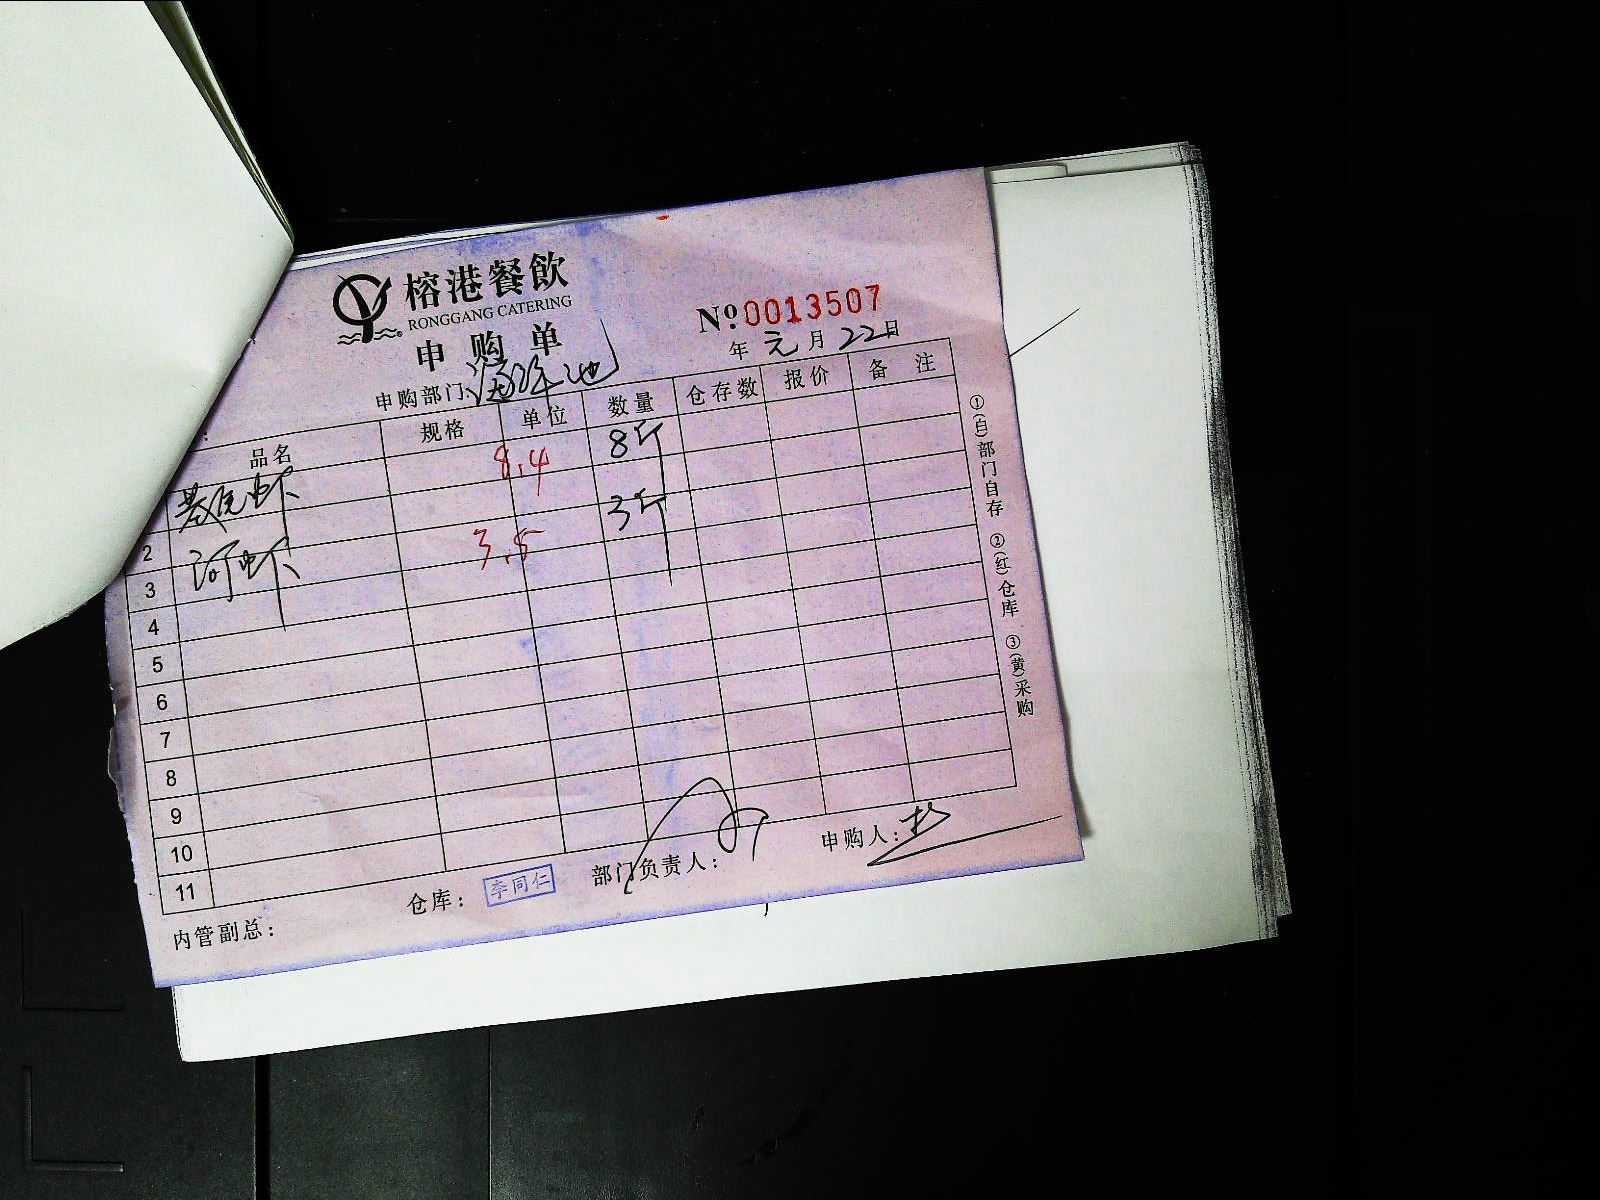 榕港餐飲
RONGGANG CATERING
申购单
No.0013507
年 元 月 22 日
申购部门:
品名 规格 单位 数量 仓存数 报价 备注
基围虾 8.4 8斤
2
河虾 3.5 3斤
3
4
5
6
7
8
9
10
11
内管副总: 仓库: 李同仁 部门负责人: 申购人:
①(白)部门自存 ②(红)仓库 ③(黄)采购